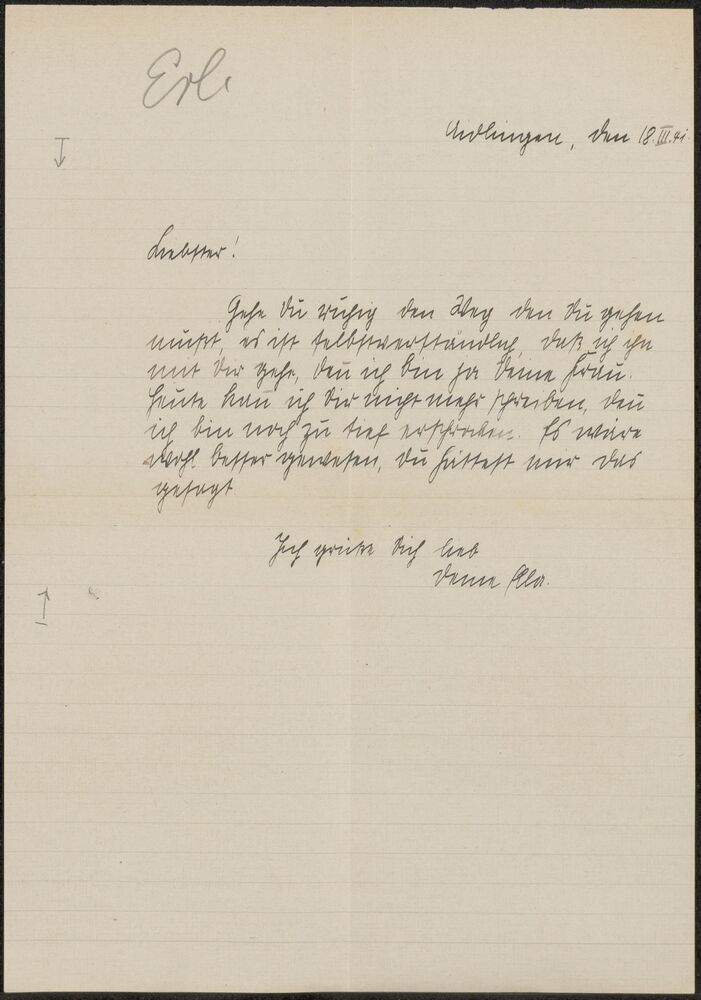 Erl.
Aidlingen, den 18.III.41.
Liebster!
Gehe Du ruhig den Weg den Du gehen
mußt, es ist selbstverständlich, daß ich ihn
mit Dir gehe, den ich bin ja Deine Frau.
Heute kan ich Dir nicht mehr schreiben, den
ich bin noch zu tief erschrocken. Es wäre
wohl besser gewesen, Du hättest mir das
gesagt
Ich grüße Dich lieb
Deine Ela.